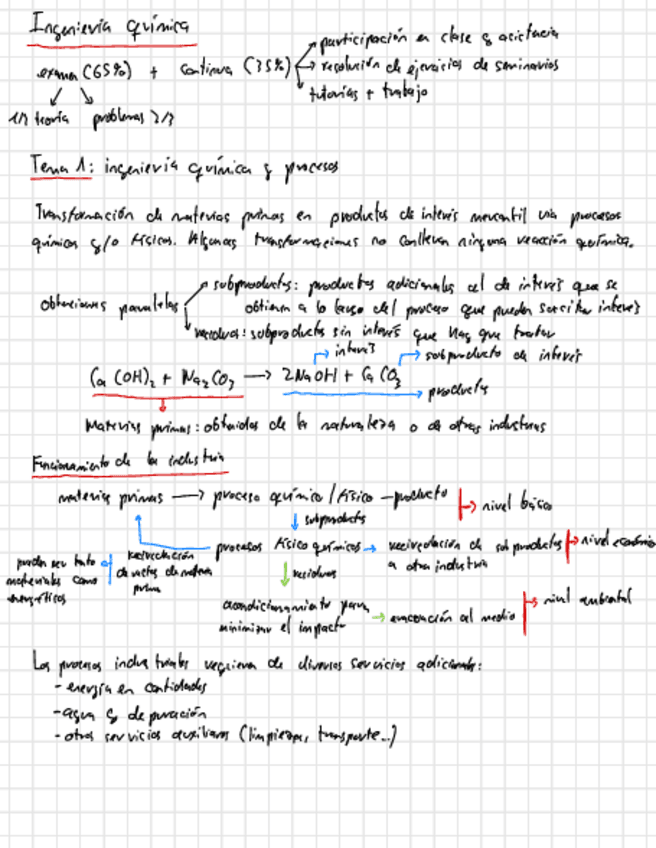 Ingeniería química
examen (65%) + continua (35%)
participación en clase y asistencia
resolución de ejercicios de seminarios
tutorías + trabajo
1/3 teoría problemas 2/3
Tema 1: ingeniería química y procesos
Transformación de materias primas en productos de interés mercantil vía procesos
químicos y/o físicos. Algunas transformaciones no conllevan ninguna reacción química.
obtenciones paralelas
subproductos: productos adicionales al de interés que se
obtienen a lo largo del proceso que pueden suscitar interés
residuos: subproductos sin interés que hay que tratar
interés
subproducto de interés
Ca(OH)₂ + Na₂CO₃ → 2NaOH + CaCO₃
productos
Materias primas: obtenidas de la naturaleza o de otras industrias
Funcionamiento de la industria
materias primas → proceso químico/físico – producto
nivel básico
subproductos
procesos físico químicos → recirculación de subproductos
a otra industria
nivel económico
recirculación
de restos de materia
prima
pueden ser tanto
materiales como
energéticos
residuos
acondicionamiento para
minimizar el impacto
→ evacuación al medio
nivel ambiental
Los procesos industriales requieren de diversos servicios adicionales:
- energía en cantidades
- agua y depuración
- otros servicios auxiliares (limpiezas, transporte...)